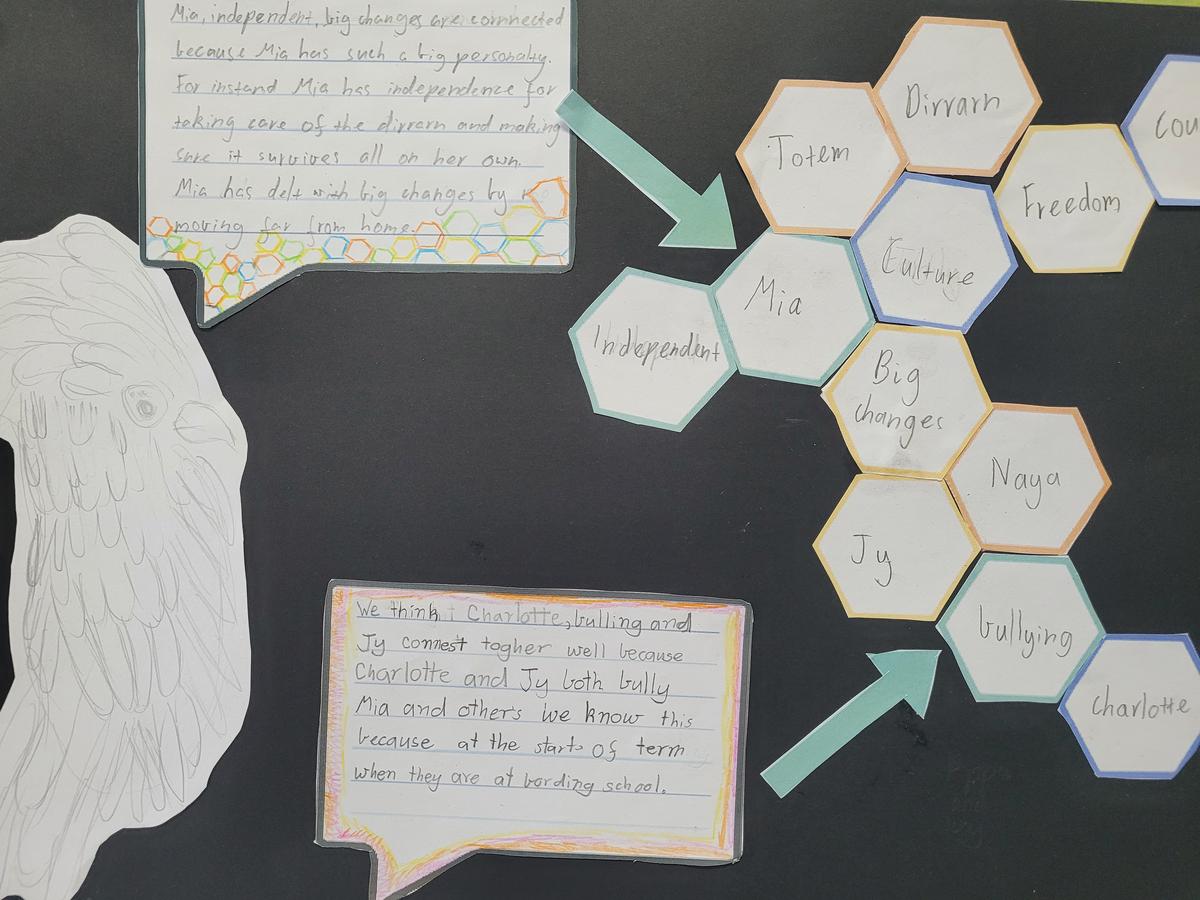 Mia, independent, big changes are connected
because Mia has such a big personalty.
For instand Mia has independence for
taking care of the dirrarn and making
sure it survives all on her own.
Mia has delt with big changes by
moving far from home.
Dirrarn
Totem
Cou
Freedom
Culture
Mia
Independent
Big
changes
Naya
Jy
bullying
Charlotte
We think Charlotte, bulling and
Jy connest togher well because
Charlotte and Jy both bully
Mia and others we know this
because at the starts of term
when they are at bording school.